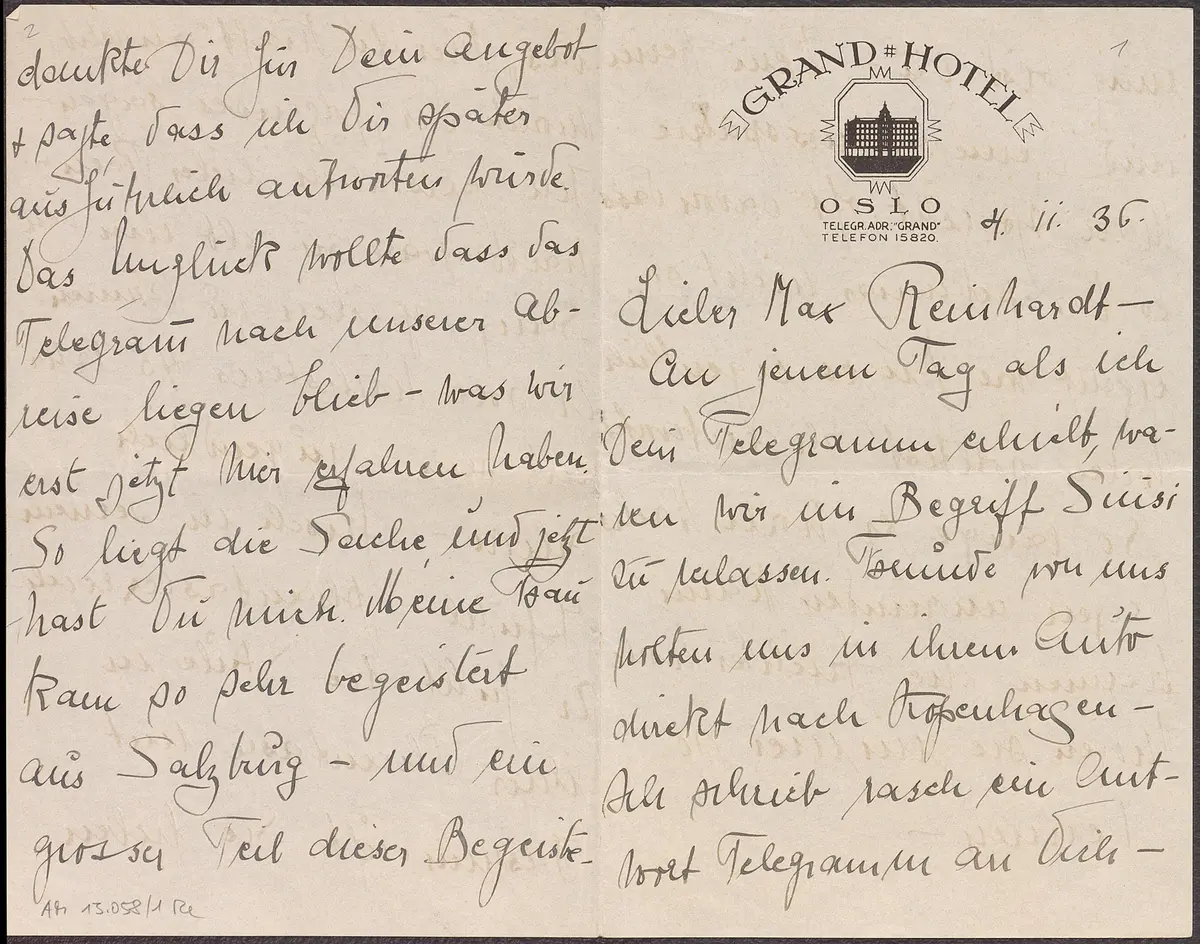 1
GRAND HOTEL
OSLO
TELEGR.ADR. "GRAND"
TELEFON 15820.
4. II. 36.
Lieber Max Reinhardt –
An jenem Tag als ich
Dein Telegramm erhielt, wa-
ren wir im Begriff
zu verlassen. Freunde von uns
holten uns in ihrem Auto
direkt nach Kopenhagen –
Ich schrieb rasch ein Ant-
wort Telegramm an Dich –
2
dankte Dir für Dein Angebot
+ sagte, dass ich Dir später
ausführlich antworten würde.
Das Unglück wollte dass das
Telegram̄ nach unserer Ab-
reise liegen blieb – was wir
erst jetzt hier erfahren haben.
So liegt die Sache, und jetzt
hast Du mich. Meine Frau
kam so sehr begeistert
aus Salzburg – und ein
grosser Teil dieser Begeiste-
AM 13.058/1 Re